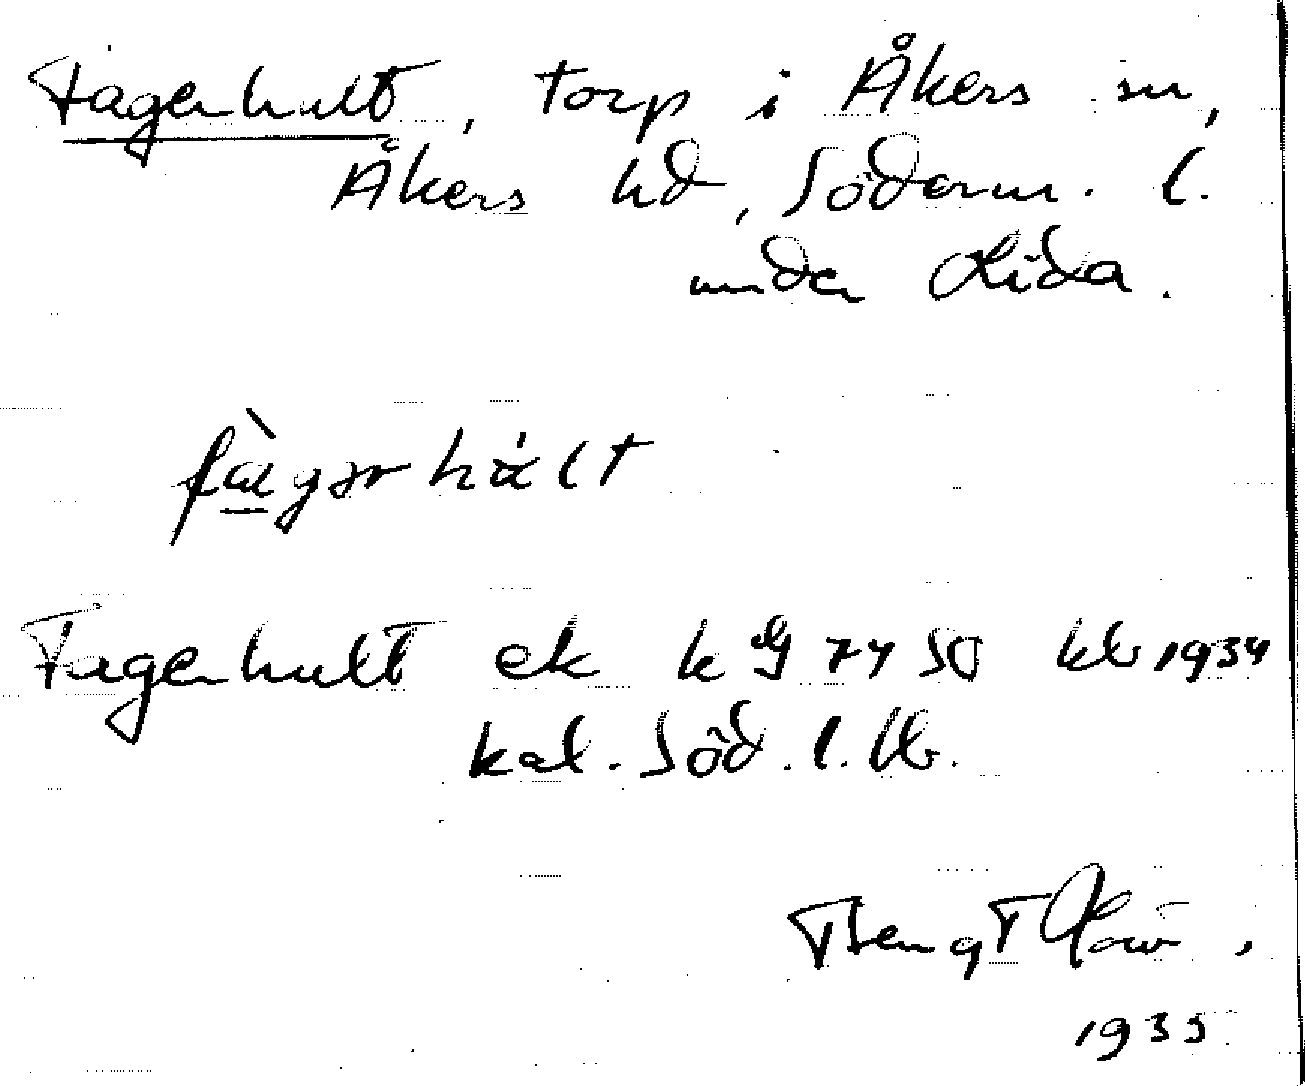 Fagerhult, torp i Åkers sn,
Åkers hd, Söderm. l.
under Lida.
Fagerhult ek k G 74 SO kb 1934
kal. Söd. l. kb.
Bengt
1935